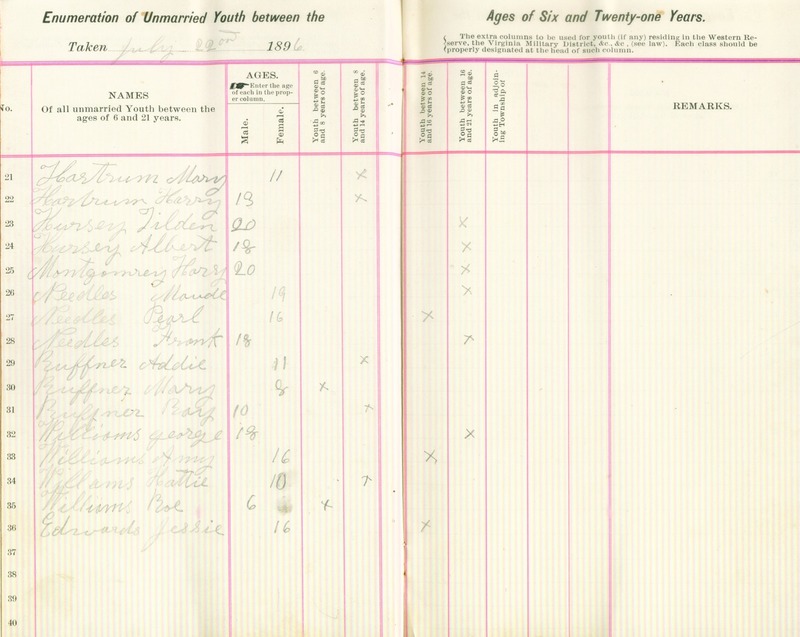 Enumeration of Unmarried Youth between the Ages of Six and Twenty-one Years.
Taken July 22nd 1896
The extra columns to be used for youth (if any) residing in the Western Re-
serve, the Virginia Military District, &c., &c., (see law). Each class should be
properly designated at the head of such column.
No.
NAMES
Of all unmarried Youth between the
ages of 6 and 21 years.
AGES.
Enter the age
of each in the prop-
er column.
Male.
Female.
Youth between 6
and 8 years of age.
Youth between 8
and 14 years of age.
Youth between 14
and 16 years of age.
Youth between 16
and 21 years of age.
Youth in adjoin-
ing Township of
REMARKS.
21 Hartrum Mary 11 x
22 Hartrum Harry 13 x
23 Hursey Tilden 20 x
24 Hursey Albert 18 x
25 Montgomrey Harry 20 x
26 Needles Maude 19 x
27 Needles Pearl 16 x
28 Needles Frank 18 x
29 Ruffner Addie 11 x
30 Ruffner Mary 8 x
31 Ruffner Roy 10 x
32 Williams george 18 x
33 Williams Amy 16 x
34 Williams Hattie 10 x
35 Williums Roe 6 x
36 Edwards Jessie 16 x
37
38
39
40